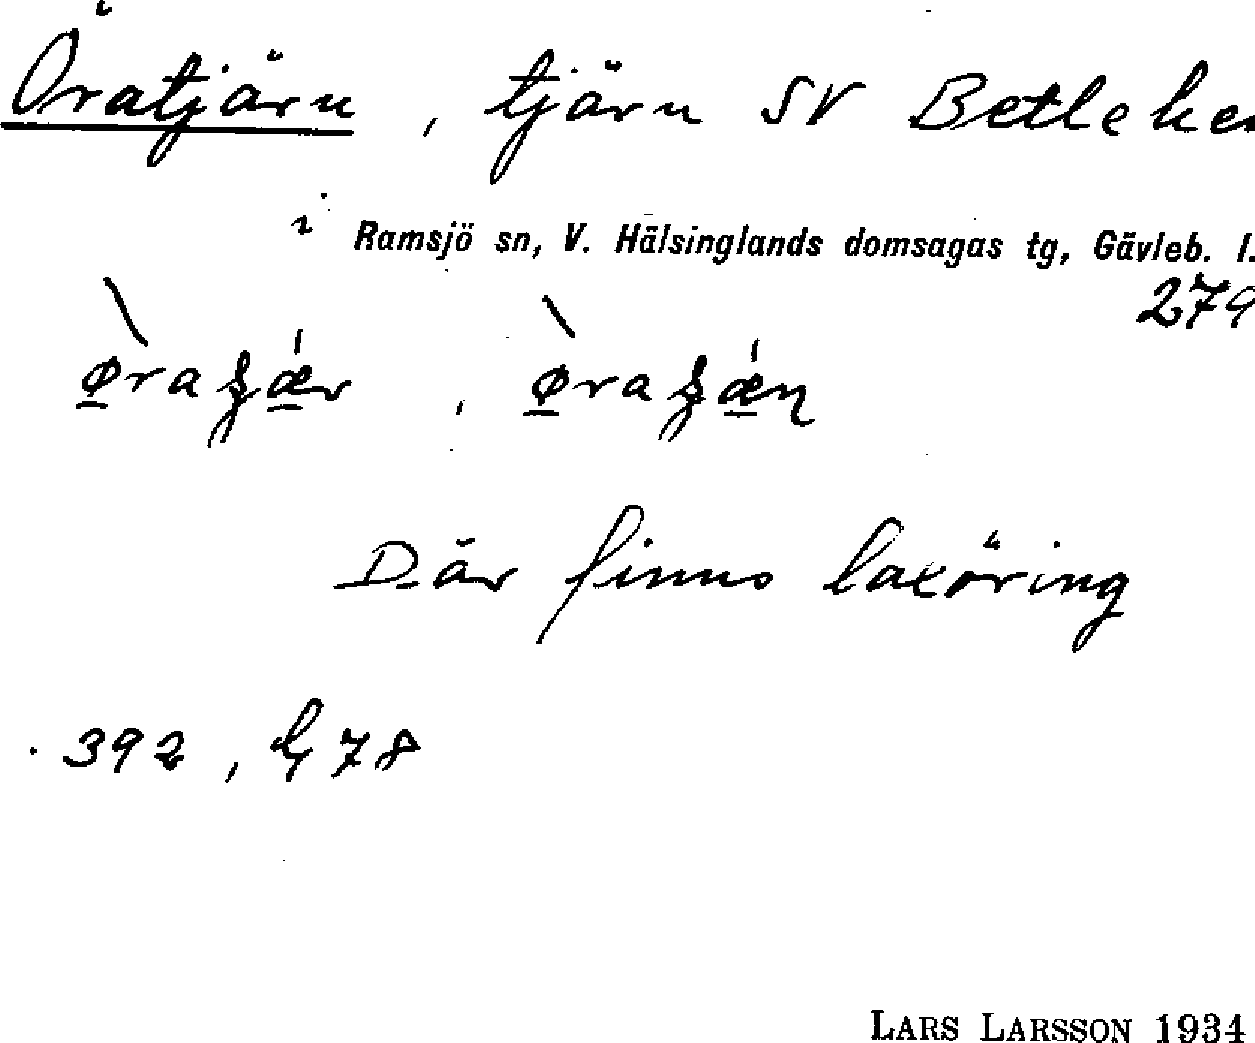 Öratjärn, tjärn SV Betlehe
i Ramsjö sn, V. Hälsinglands domsagas tg, Gävleb. l.
279
Där finns laxöring
392, h 78
LARS LARSSON 1934